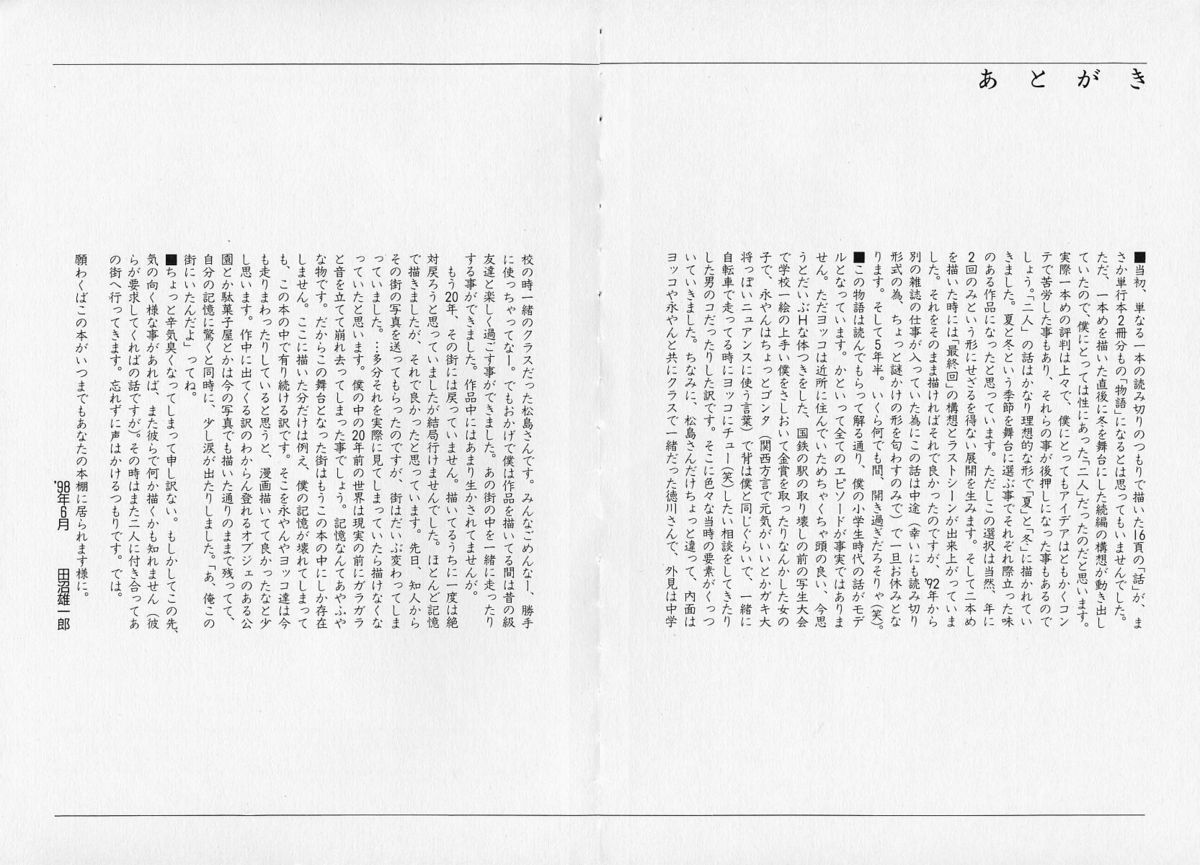 あとがき
■当初、単なる一本の読み切りのつもりで描いた16頁の「話」が、ま
さか単行本2冊分もの「物語」になるとは思ってもいませんでした。
ただ、一本めを描いた直後に冬を舞台にした続編の構想が動き出し
ていたので、僕にとっては性にあった「二人」だったのだと思います。
実際一本めの評判は上々で、僕にとってもアイデアはともかくコン
テで苦労した事もあり、それらの事が後押しになった事もあるので
しょう。「二人」の話はかなり理想的な形で「夏」と「冬」に描かれてい
きました。夏と冬という季節を舞台に選ぶ事でそれぞれ際立った味
のある作品になったと思っています。ただしこの選択は当然、年に
2回のみという形にせざるを得ない展開を生みます。そして二本め
を描いた時には「最終回」の構想とラストシーンが出来上がっていま
した。それをそのまま描ければそれで良かったのですが、'92年から
別の雑誌の仕事が入っていた為にこの話は中途（幸いにも読み切り
形式の為、ちょっと謎かけの形を匂わすのみで）で一旦お休みとな
ります。そして5年半。いくら何でも間、開き過ぎだろそりゃ（笑）。
■この物語は読んでもらって解る通り、僕の小学生時代の話がモデ
ルとなっています。かといって全てのエピソードが事実ではありま
せん。ただヨッコは近所に住んでいためちゃくちゃ頭の良い、今思
うとだいぶHな体つきをした、国鉄の駅の取り壊しの前の写生大会
で学校一絵の上手い僕をさしおいて金賞を取ったりなんかした女の
子で、永やんはちょっとゴンタ（関西方言で元気がいいとかガキ大
将っぽいニュアンスに使う言葉）で背は僕と同じぐらいで、一緒に
自転車で走ってる時にヨッコにチュー（笑）したい相談をしてきたり
した男のコだったりした訳です。そこに色々な当時の要素がくっつ
いていきました。ちなみに、松島さんだけちょっと違って、内面は
ヨッコや永やんと共にクラスで一緒だった徳川さんで、外見は中学
校の時一緒のクラスだった松島さんです。みんなごめんなー、勝手
に使っちゃってなー。でもおかげで僕は作品を描いてる間は昔の級
友達と楽しく過ごす事ができました。あの街の中を一緒に走ったり
する事ができました。作品中にはあまり生かされてませんが。
もう20年、その街には戻っていません。描いてるうちに一度は絶
対戻ろうと思っていましたが結局行けませんでした。ほとんど記憶
で描きましたが、それで良かったと思っています。先日、知人から
その街の写真を送ってもらったのですが、街はだいぶ変わってしま
っていました。…多分それを実際に見てしまっていたら描けなくな
っていたと思います。僕の中の20年前の世界は現実の前にガラガラ
と音を立てて崩れ去ってしまった事でしょう。記憶なんてあやふや
な物です。だからこの舞台となった街はもうこの本の中にしか存在
しません。ここに描いた分だけは例え、僕の記憶が壊れてしまって
も、この本の中で有り続ける訳です。そこを永やんやヨッコ達は今
も走りまわったりしていると思うと、漫画描いてて良かったなと少
し思います。作中に出てくる訳のわからん登れるオブジェのある公
園とか駄菓子屋とかは今の写真でも描いた通りのままで残ってて、
自分の記憶に驚くと同時に、少し涙が出たりしました。「あ、俺この
街にいたんだよ」ってね。
■ちょっと辛気臭くなってしまって申し訳ない。もしかしてこの先、
気の向く様な事があれば、また彼らで何か描くかも知れません（彼
らが要求してくればの話ですが）。その時はまた二人に付き合ってあ
の街へ行ってきます。忘れずに声はかけるつもりです。では。
願わくばこの本がいつまでもあなたの本棚に居られます様に。
'98年6月　田沼雄一郎